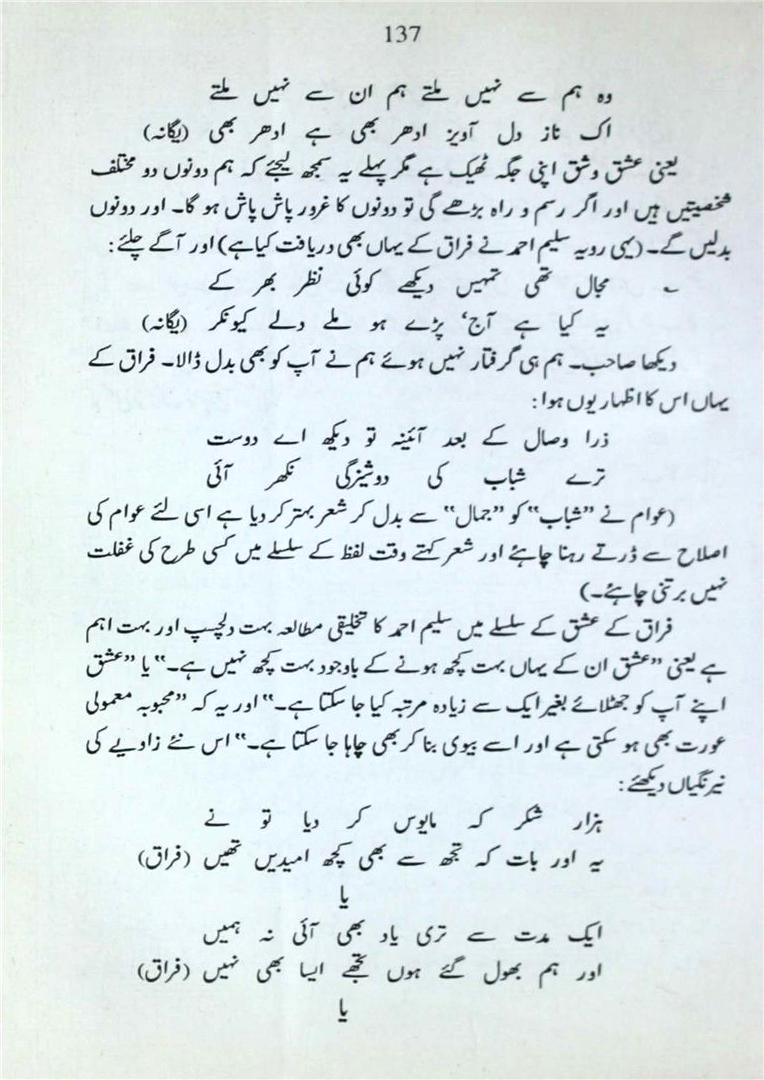 137
وہ ہم سے نہیں ملتے ہم ان سے نہیں ملتے
اک ناز دل آویز ادھر بھی ہے ادھر بھی (یگانہ)
یعنی عشق وشق اپنی جگہ ٹھیک ہے مگر پہلے یہ سمجھ لیجئے کہ ہم دونوں دو مختلف
شخصیتیں ہیں اور اگر رسم و راہ بڑھے گی تو دونوں کا غرور پاش پاش ہو گا۔ اور دونوں
بدلیں گے۔ (یہی رویہ سلیم احمد نے فراق کے یہاں بھی دریافت کیا ہے) اور آگے چلئے:
؎ مجال تھی تمہیں دیکھے کوئی نظر بھر کے
یہ کیا ہے آج، پڑے ہو ملے دلے کیونکر (یگانہ)
دیکھا صاحب۔ ہم ہی گرفتار نہیں ہوئے ہم نے آپ کو بھی بدل ڈالا۔ فراق کے
یہاں اس کا اظہار یوں ہوا:
ذرا وصال کے بعد آئینہ تو دیکھ اے دوست
ترے شباب کی دوشیزگی نکھر آئی
(عوام نے ”شباب“ کو ”جمال“ سے بدل کر شعر بہتر کر دیا ہے اسی لئے عوام کی
اصلاح سے ڈرتے رہنا چاہئے اور شعر کہتے وقت لفظ کے سلسلے میں کسی طرح کی غفلت
نہیں برتنی چاہئے۔)
فراق کے عشق کے سلسلے میں سلیم احمد کا تخلیقی مطالعہ بہت دلچسپ اور بہت اہم
ہے یعنی ”عشق ان کے یہاں بہت کچھ ہونے کے باوجود بہت کچھ نہیں ہے۔“ یا ”عشق
اپنے آپ کو جھٹلائے بغیر ایک سے زیادہ مرتبہ کیا جا سکتا ہے۔“ اور یہ کہ ”محبوبہ معمولی
عورت بھی ہو سکتی ہے اور اسے بیوی بنا کر بھی چاہا جا سکتا ہے۔“ اس نئے زاویے کی
نیرنگیاں دیکھئے:
ہزار شکر کہ مایوس کر دیا تو نے
یہ اور بات کہ تجھ سے بھی کچھ امیدیں تھیں (فراق)
یا
ایک مدت سے تری یاد بھی آئی نہ ہمیں
اور ہم بھول گئے ہوں تجھے ایسا بھی نہیں (فراق)
یا